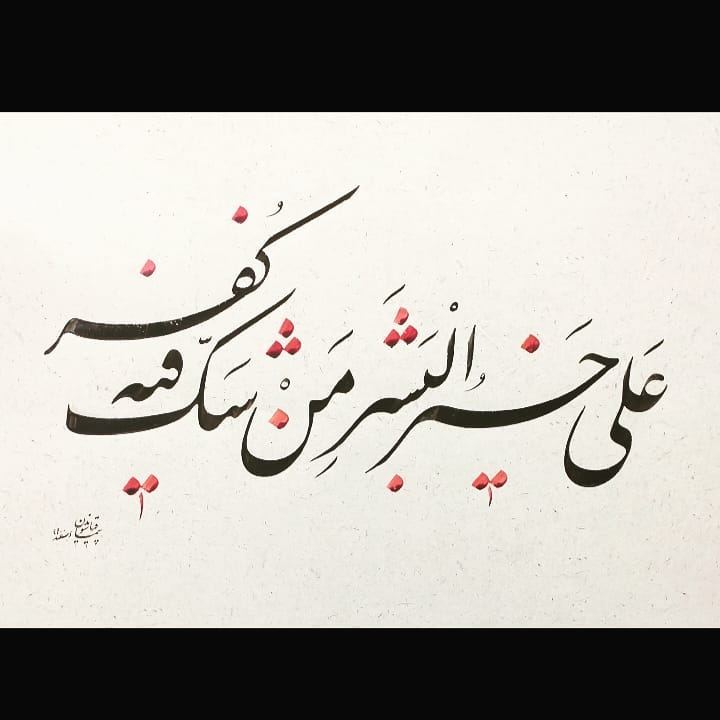 عَلی خَیرُ الْبَشَر مَنْ شَکَّ فیه کُفر